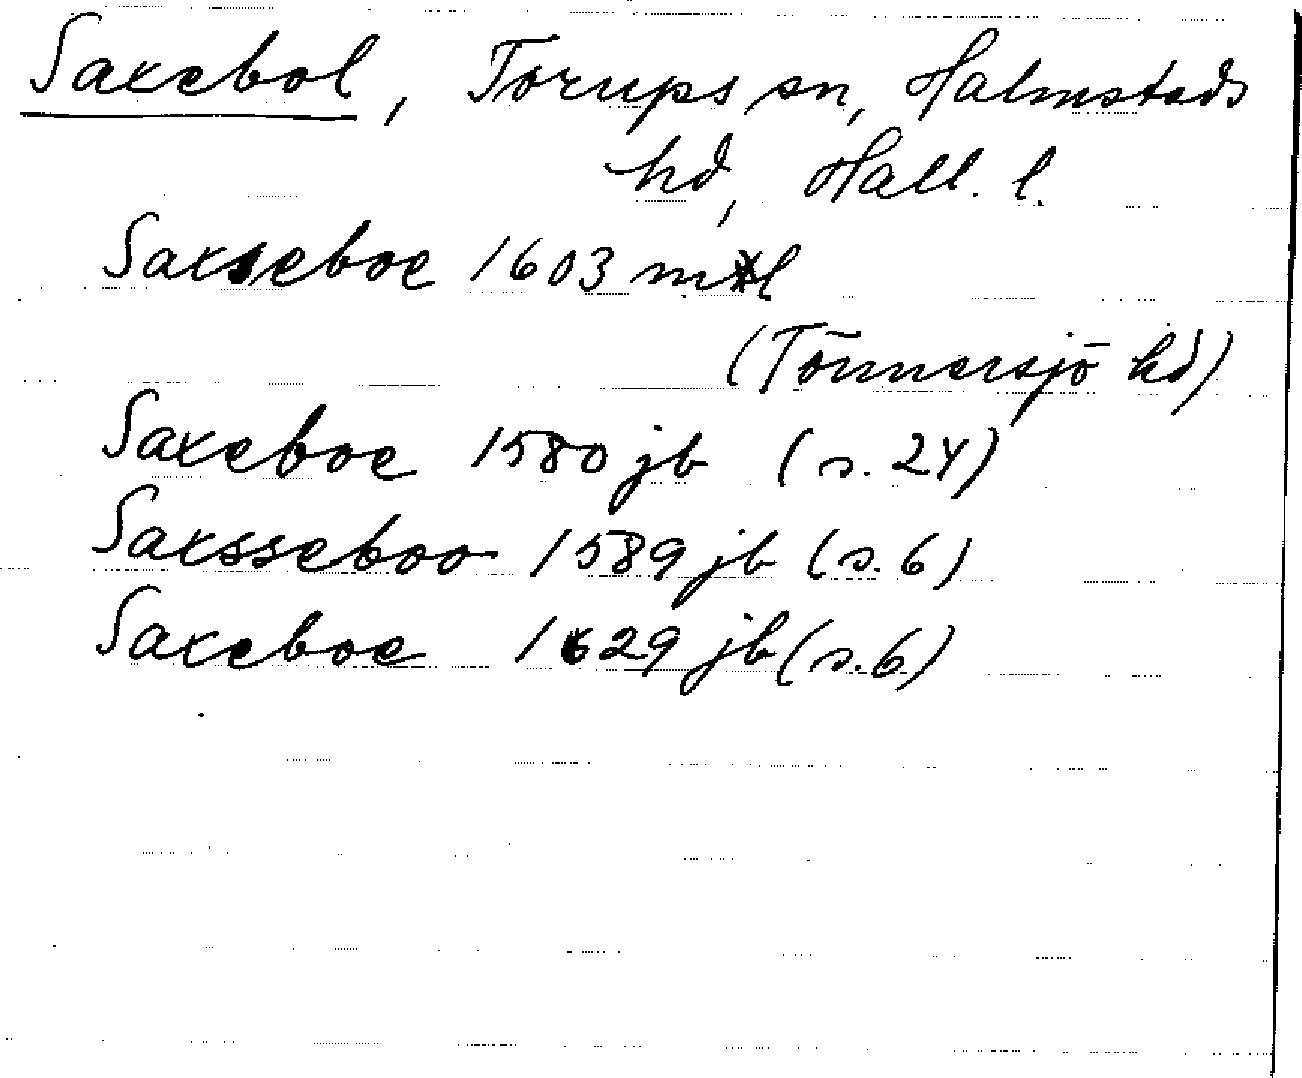 Saxebol, Torups sn, Halmstads
hd, Hall. l.
Saxseboe 1603 mtl
(Tönnersjö hd)
Saxeboe 1580 jb (s. 24)
Saxsseboo 1589 jb (s. 6)
Saxeboe 1629 jb (s. 6)